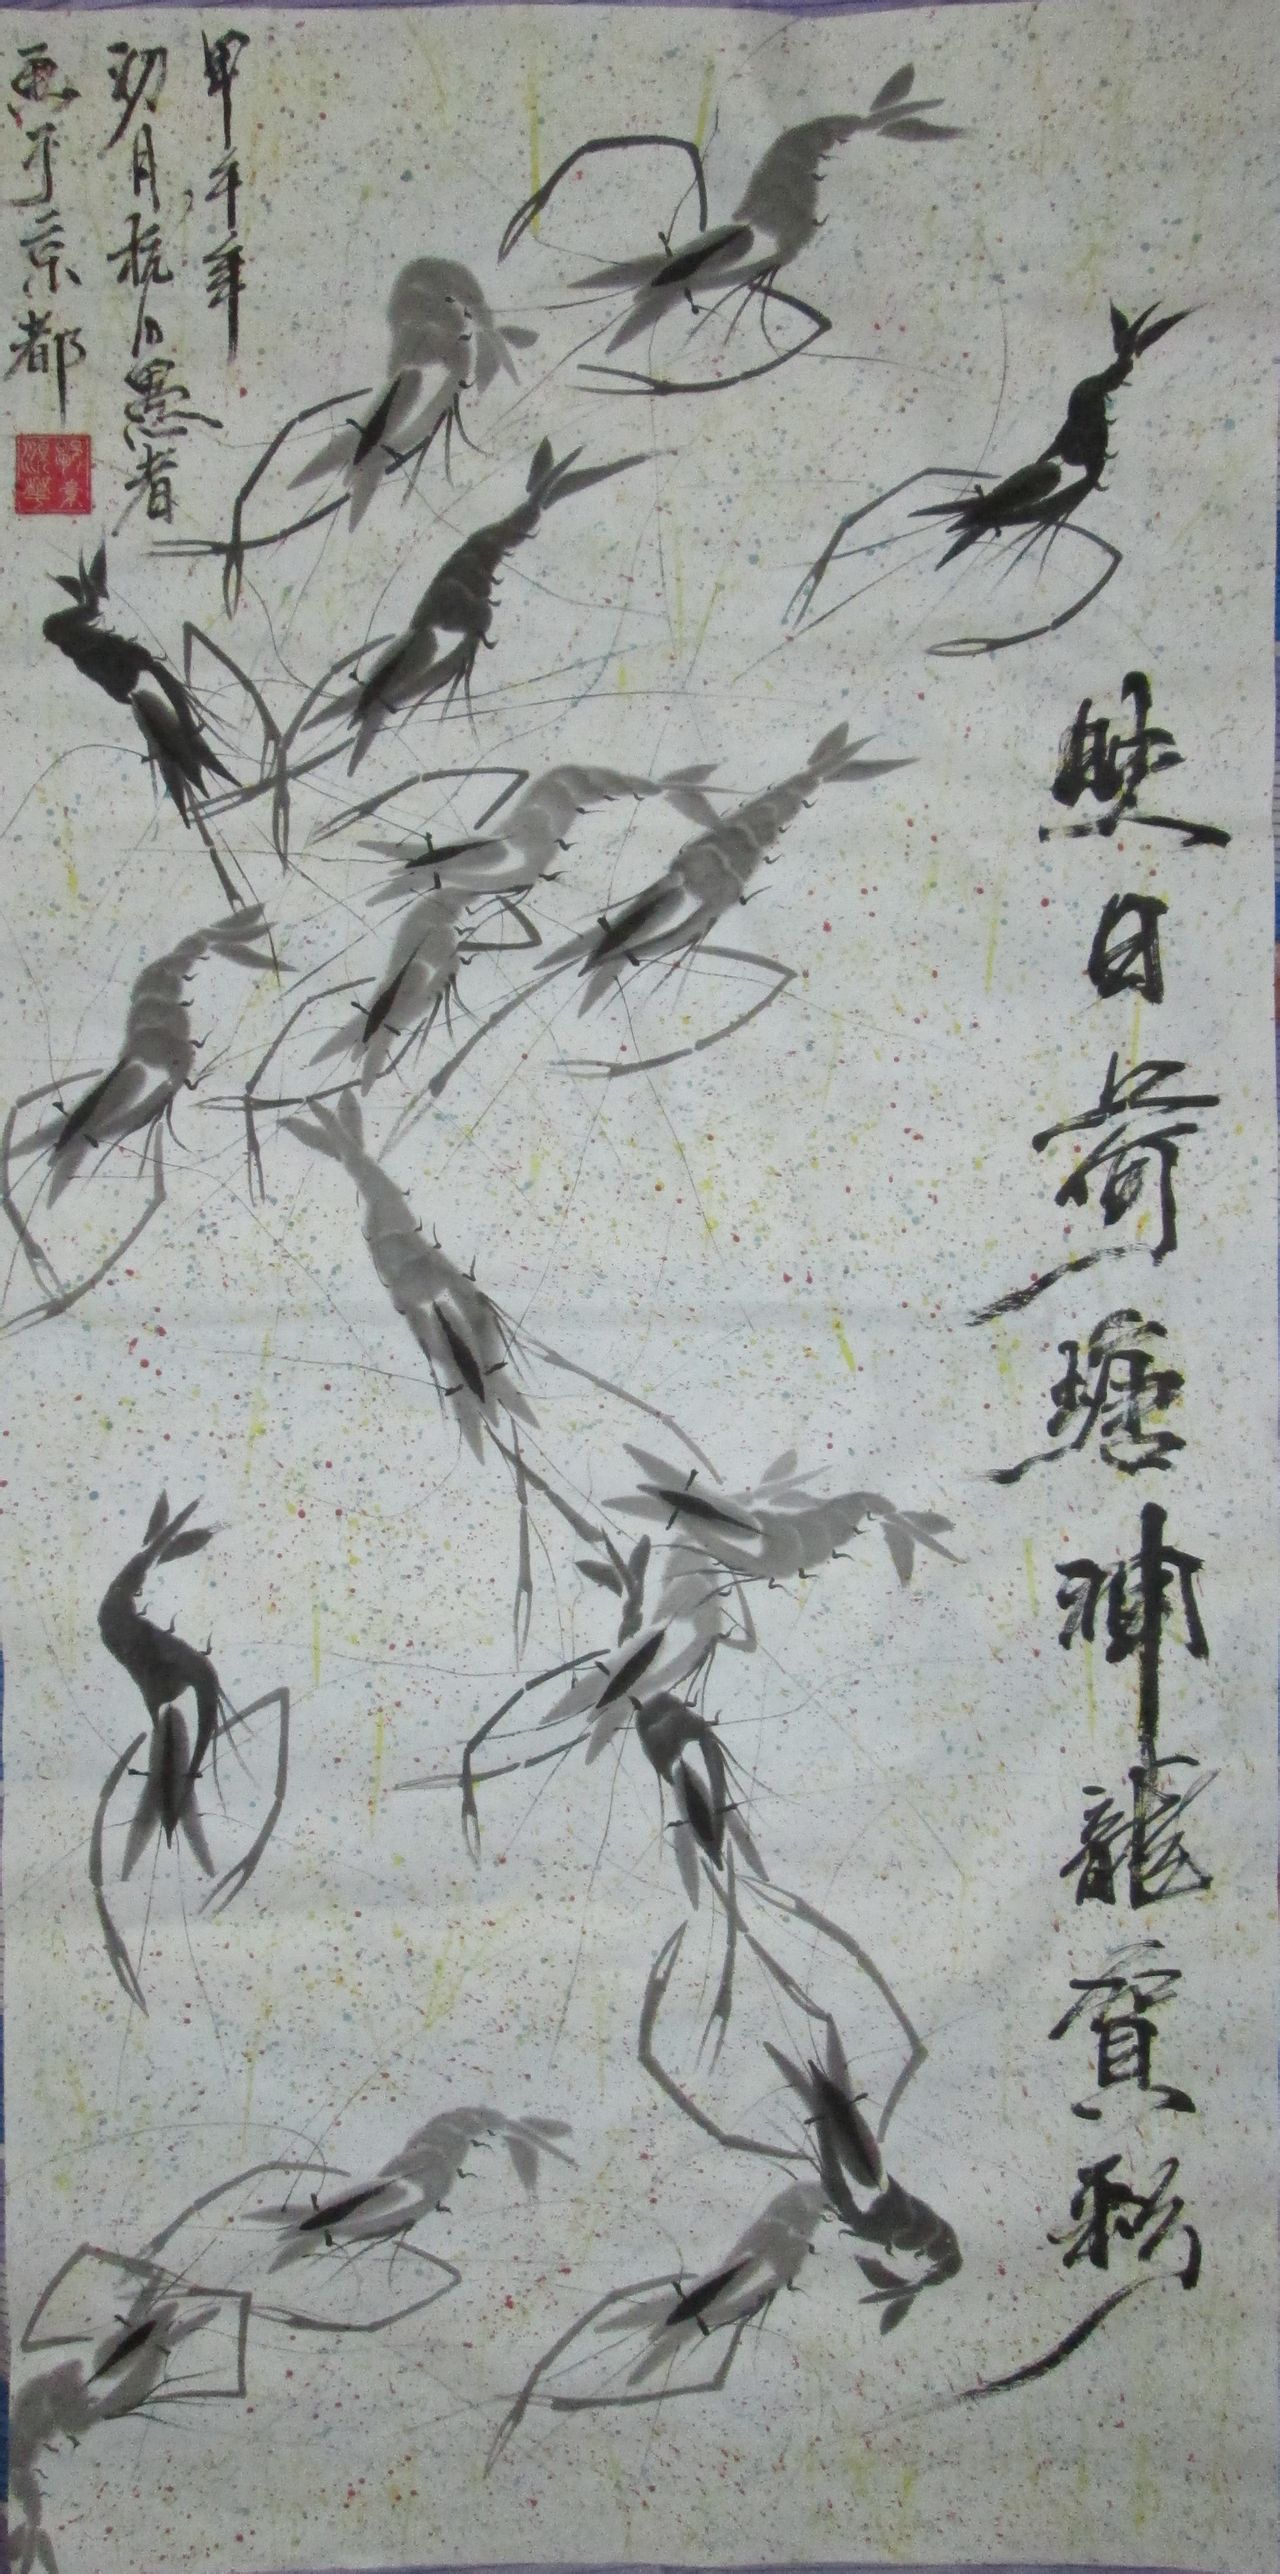 映日荷塘神龍賓彩
甲午年
初月杭人愚者
画于京都